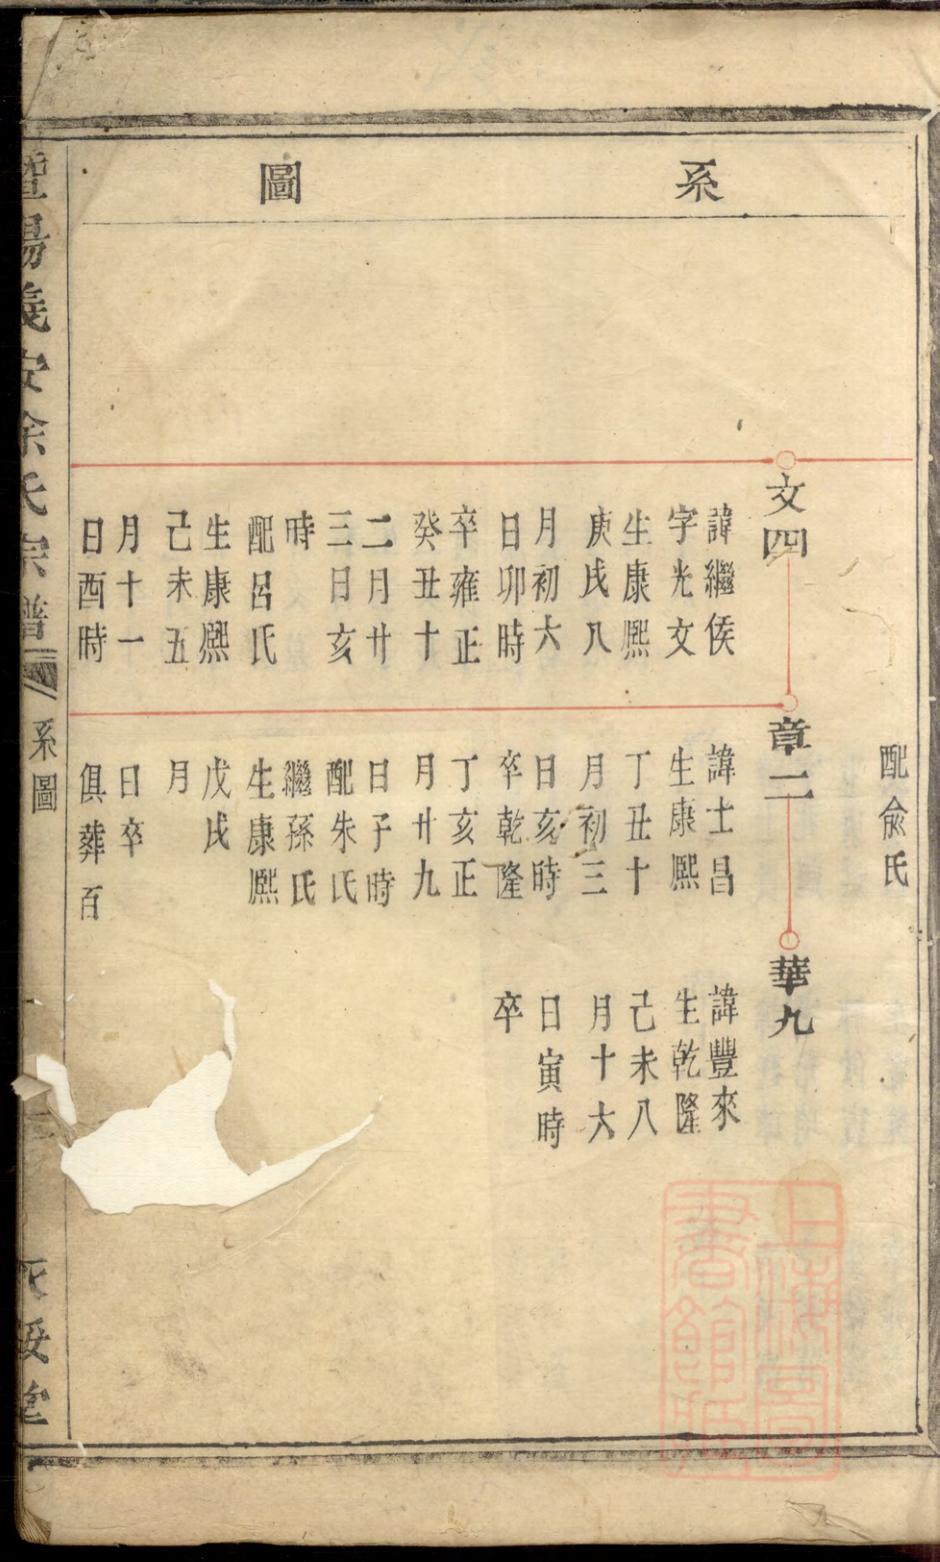 系圖
配俞氏
文四
諱繼侯
字光文
生康熙
庚戌八
月初六
日卯時
卒雍正
癸丑十
二月廿
三日亥
時
配呂氏
生康熙
己未五
月十一
日酉時
章二
諱士昌
生康熙
丁丑十
月初三
日亥時
卒乾隆
丁亥正
月廿九
日子時
配朱氏
繼孫氏
生康熙
戊戌
月
日卒
俱葬百
華九
諱豐來
生乾隆
己未八
月十六
日寅時
卒
暨陽義安余氏宗譜
系圖
上海圖書館藏